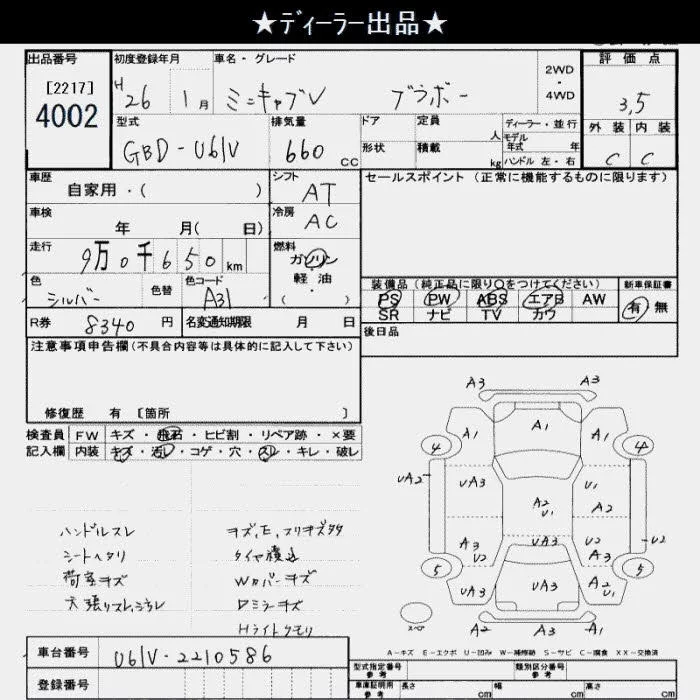 ★ディーラー出品★
出品番号 初度登録年月 車名・グレード 2WD・4WD 評価点
[2217] 4002 H26 1月 ミニキャブV ブラボー 3,5
型式 排気量 ドア 定員 人 ディーラー・並行 外装 内装
GBD-U61V 660 CC 形状 積載 kg モデル年式 年 C C
ハンドル 左・右
車歴 シフト セールスポイント (正常に機能するものに限ります)
自家用・( ) AT
車検 冷房
年 月( 日) AC
走行 燃料
9万0千650km ガソリン・軽油
( )
色 色替 色コード 装備品(純正品に限り○をつけてください) 新車保証書
シルバー A31 PS PW ABS エアB AW 有 無
SR ナビ TV カワ
R券 8340円 名変通知期限 月 日 後日品
注意事項申告欄(不具合内容等は具体的に記入して下さい)
修復歴 有 [箇所 ]
検査員 FW キズ・飛石・ヒビ割・リペア跡・×要
記入欄 内装 キズ・汚レ・コゲ・穴・スレ・キレ・破レ
ハンドルスレ
シートヘタリ
荷室キズ
天張りスレ,シミレ
タイヤ積込
Wカバーキズ
Dミラーキズ
Hライトクモリ
A3 A3
A1 A1 A1
4 4
UA2 UA3 U1
A2 U1 A2
A3 U2 UA3 U2 A3 U2
5 5
UA3 UA3 A2 U1
スペア A2 A3 A3
A-キズ E-エクボ U-凹み W-補修跡 S-サビ C-腐食 XX-交換済
車台番号 U61V-2210586
登録番号
型式指定番号 参考 類別区分番号 参考
車庫証明用 参考 長さ cm 幅 cm 高さ cm